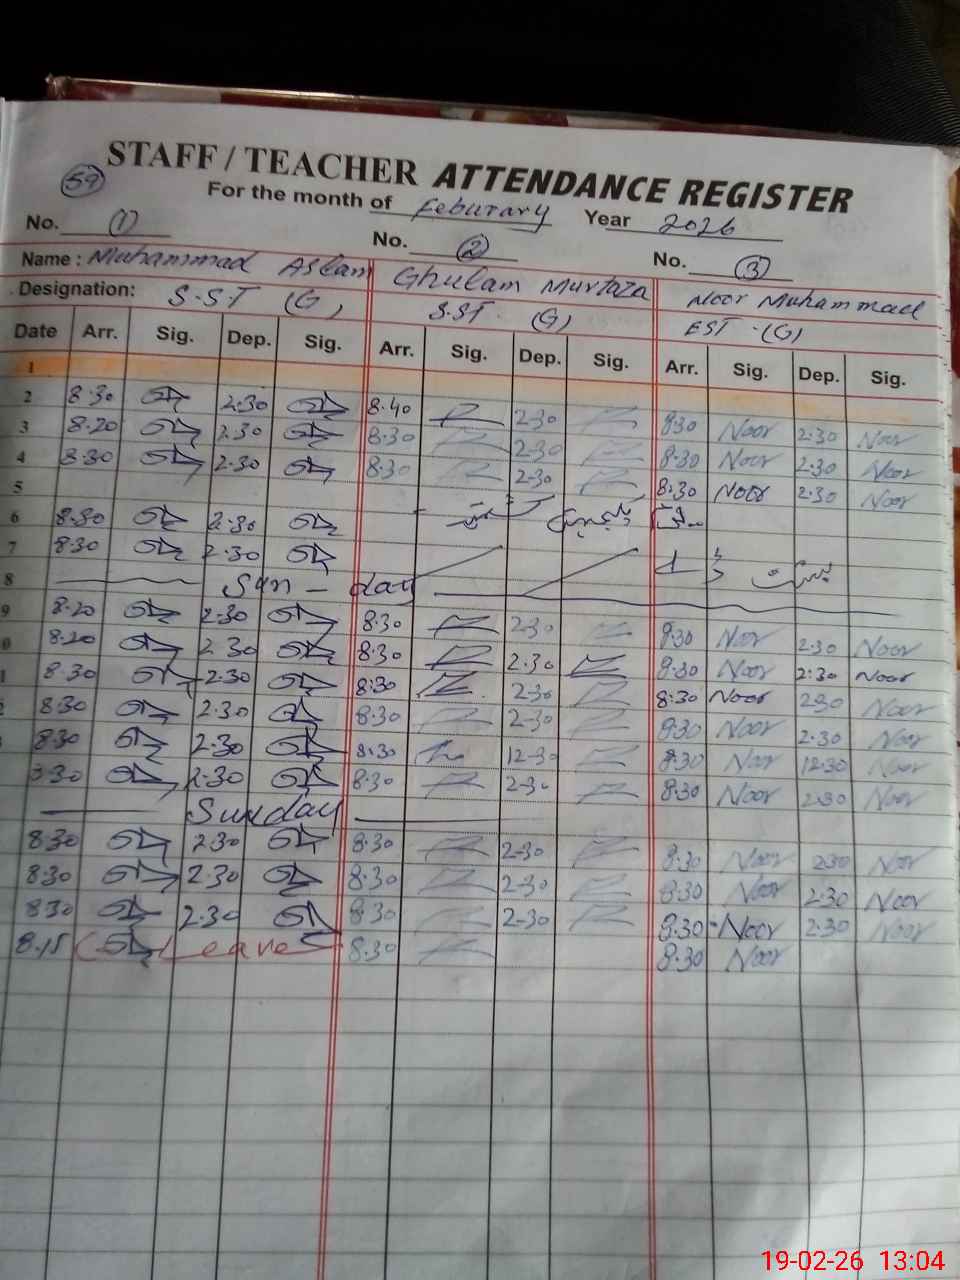 STAFF / TEACHER ATTENDANCE REGISTER
59 For the month of Feburary Year 2026
No. 1 No. 2 No. 3
Name : Muhammad Aslam Ghulam Murtaza Noor Muhammad
Designation: S.S.T (G) S.ST. (G) EST.(G)
Date Arr. Sig. Dep. Sig. Arr. Sig. Dep. Sig. Arr. Sig. Dep. Sig.
1
2 8.30 2.30 8.40 2-30 8.30 Noor 2.30 Noor
3 8.20 2.30 8.30 2-30 8.30 Noor 2.30 Noor
4 8.30 2.30 8.30 2-30 8.30 Noor 2.30 Noor
5
6 8.30 2.30
7 8.30 2.30
8 Sun - day
9 8.20 2.30 8.30 2-30 8.30 Noor 2.30 Noor
0 8.20 2.30 8.30 2.30 8.30 Noor 2.30 Noor
8.30 2.30 8.30 2-30 8.30 Noor 2.30 Noor
8.30 2.30 8.30 2-30 8.30 Noor 2.30 Noor
8.30 2.30 8.30 12-30 8.30 Noor 12.30 Noor
8.30 2.30 8.30 2-30 8.30 Noor 2.30 Noor
Sunday
8.30 2.30 8.30 2-30 8.30 Noor 2.30 Noor
8.30 2.30 8.30 2-30 8.30 Noor 2.30 Noor
8.30 2.30 8.30 2-30 8.30 Noor 2.30 Noor
8.15 Leave 8.30 8.30 Noor
19-02-26 13:04